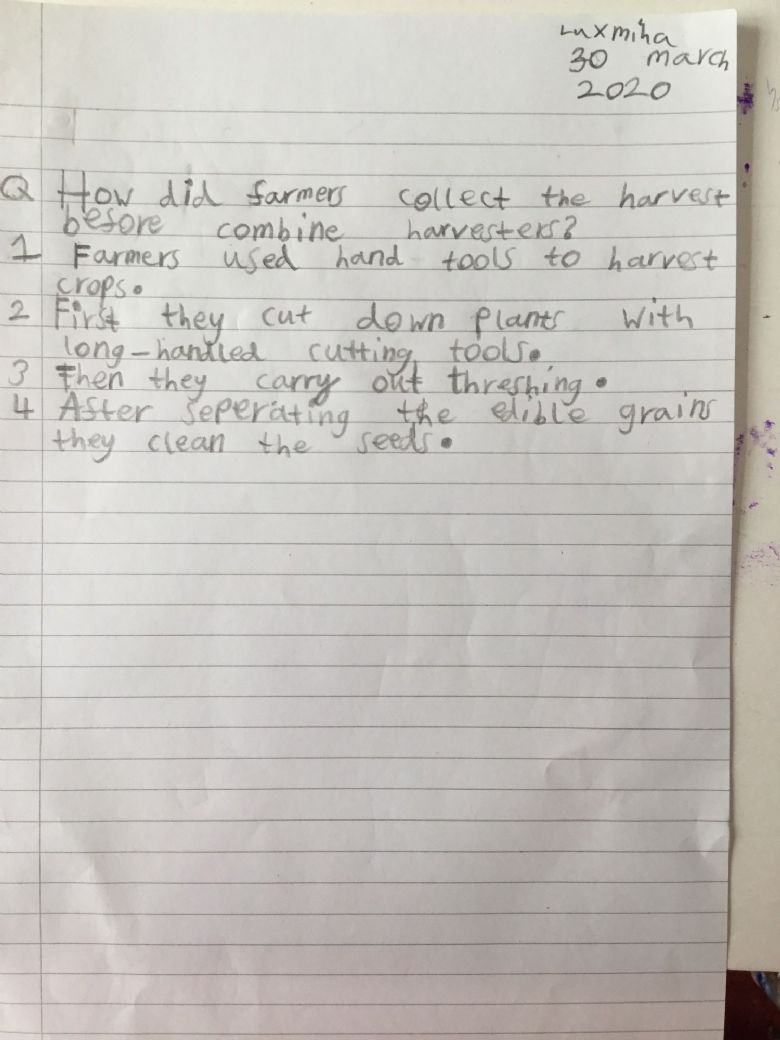 Luxmiha
30 march
2020
Q How did farmers collect the harvest
before combine harvesters?
1 Farmers used hand tools to harvest
crops.
2 First they cut down plants with
long-handled cutting tools.
3 Then they carry out threshing.
4 After seperating the edible grains
they clean the seeds.